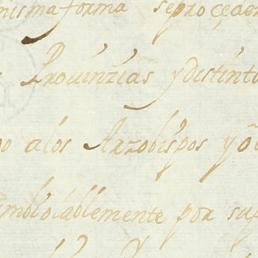 misma forma se proçeder
Prouinzias y distinto
alos Arzobispos y o
ymbiolablemente por su